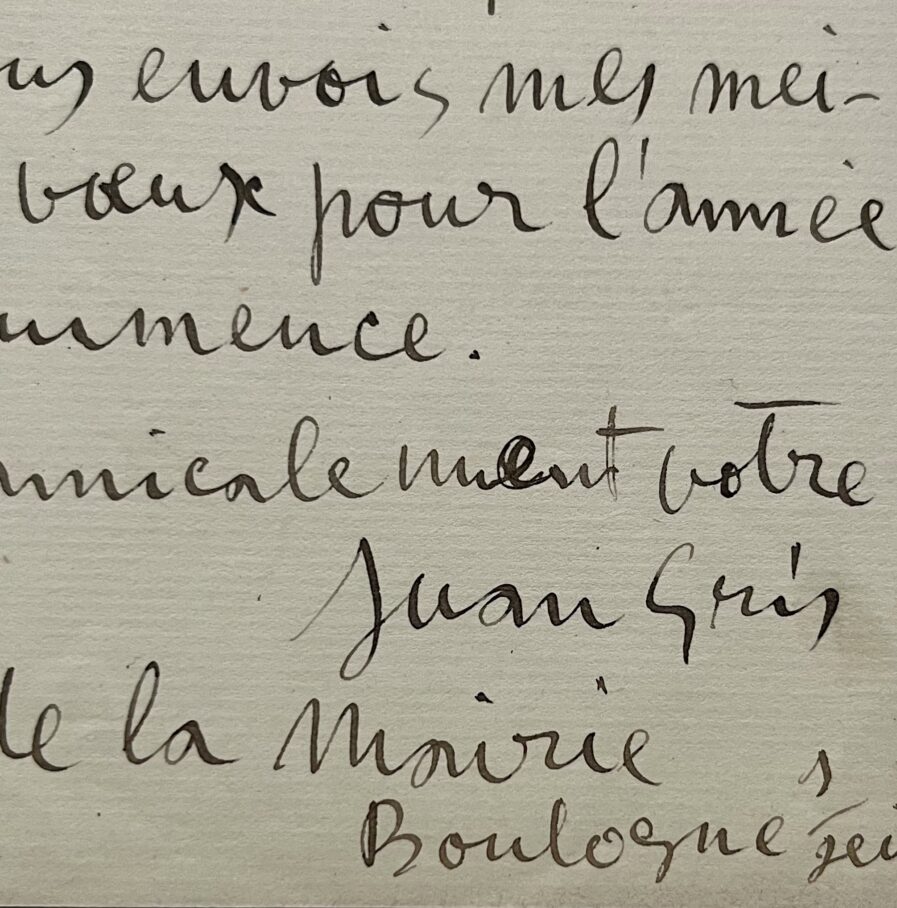 us envois mes mei-
vœux pour l'année
ommence.
amicalement votre
Juan Gris
de la Mairie
Boulogne s/sei